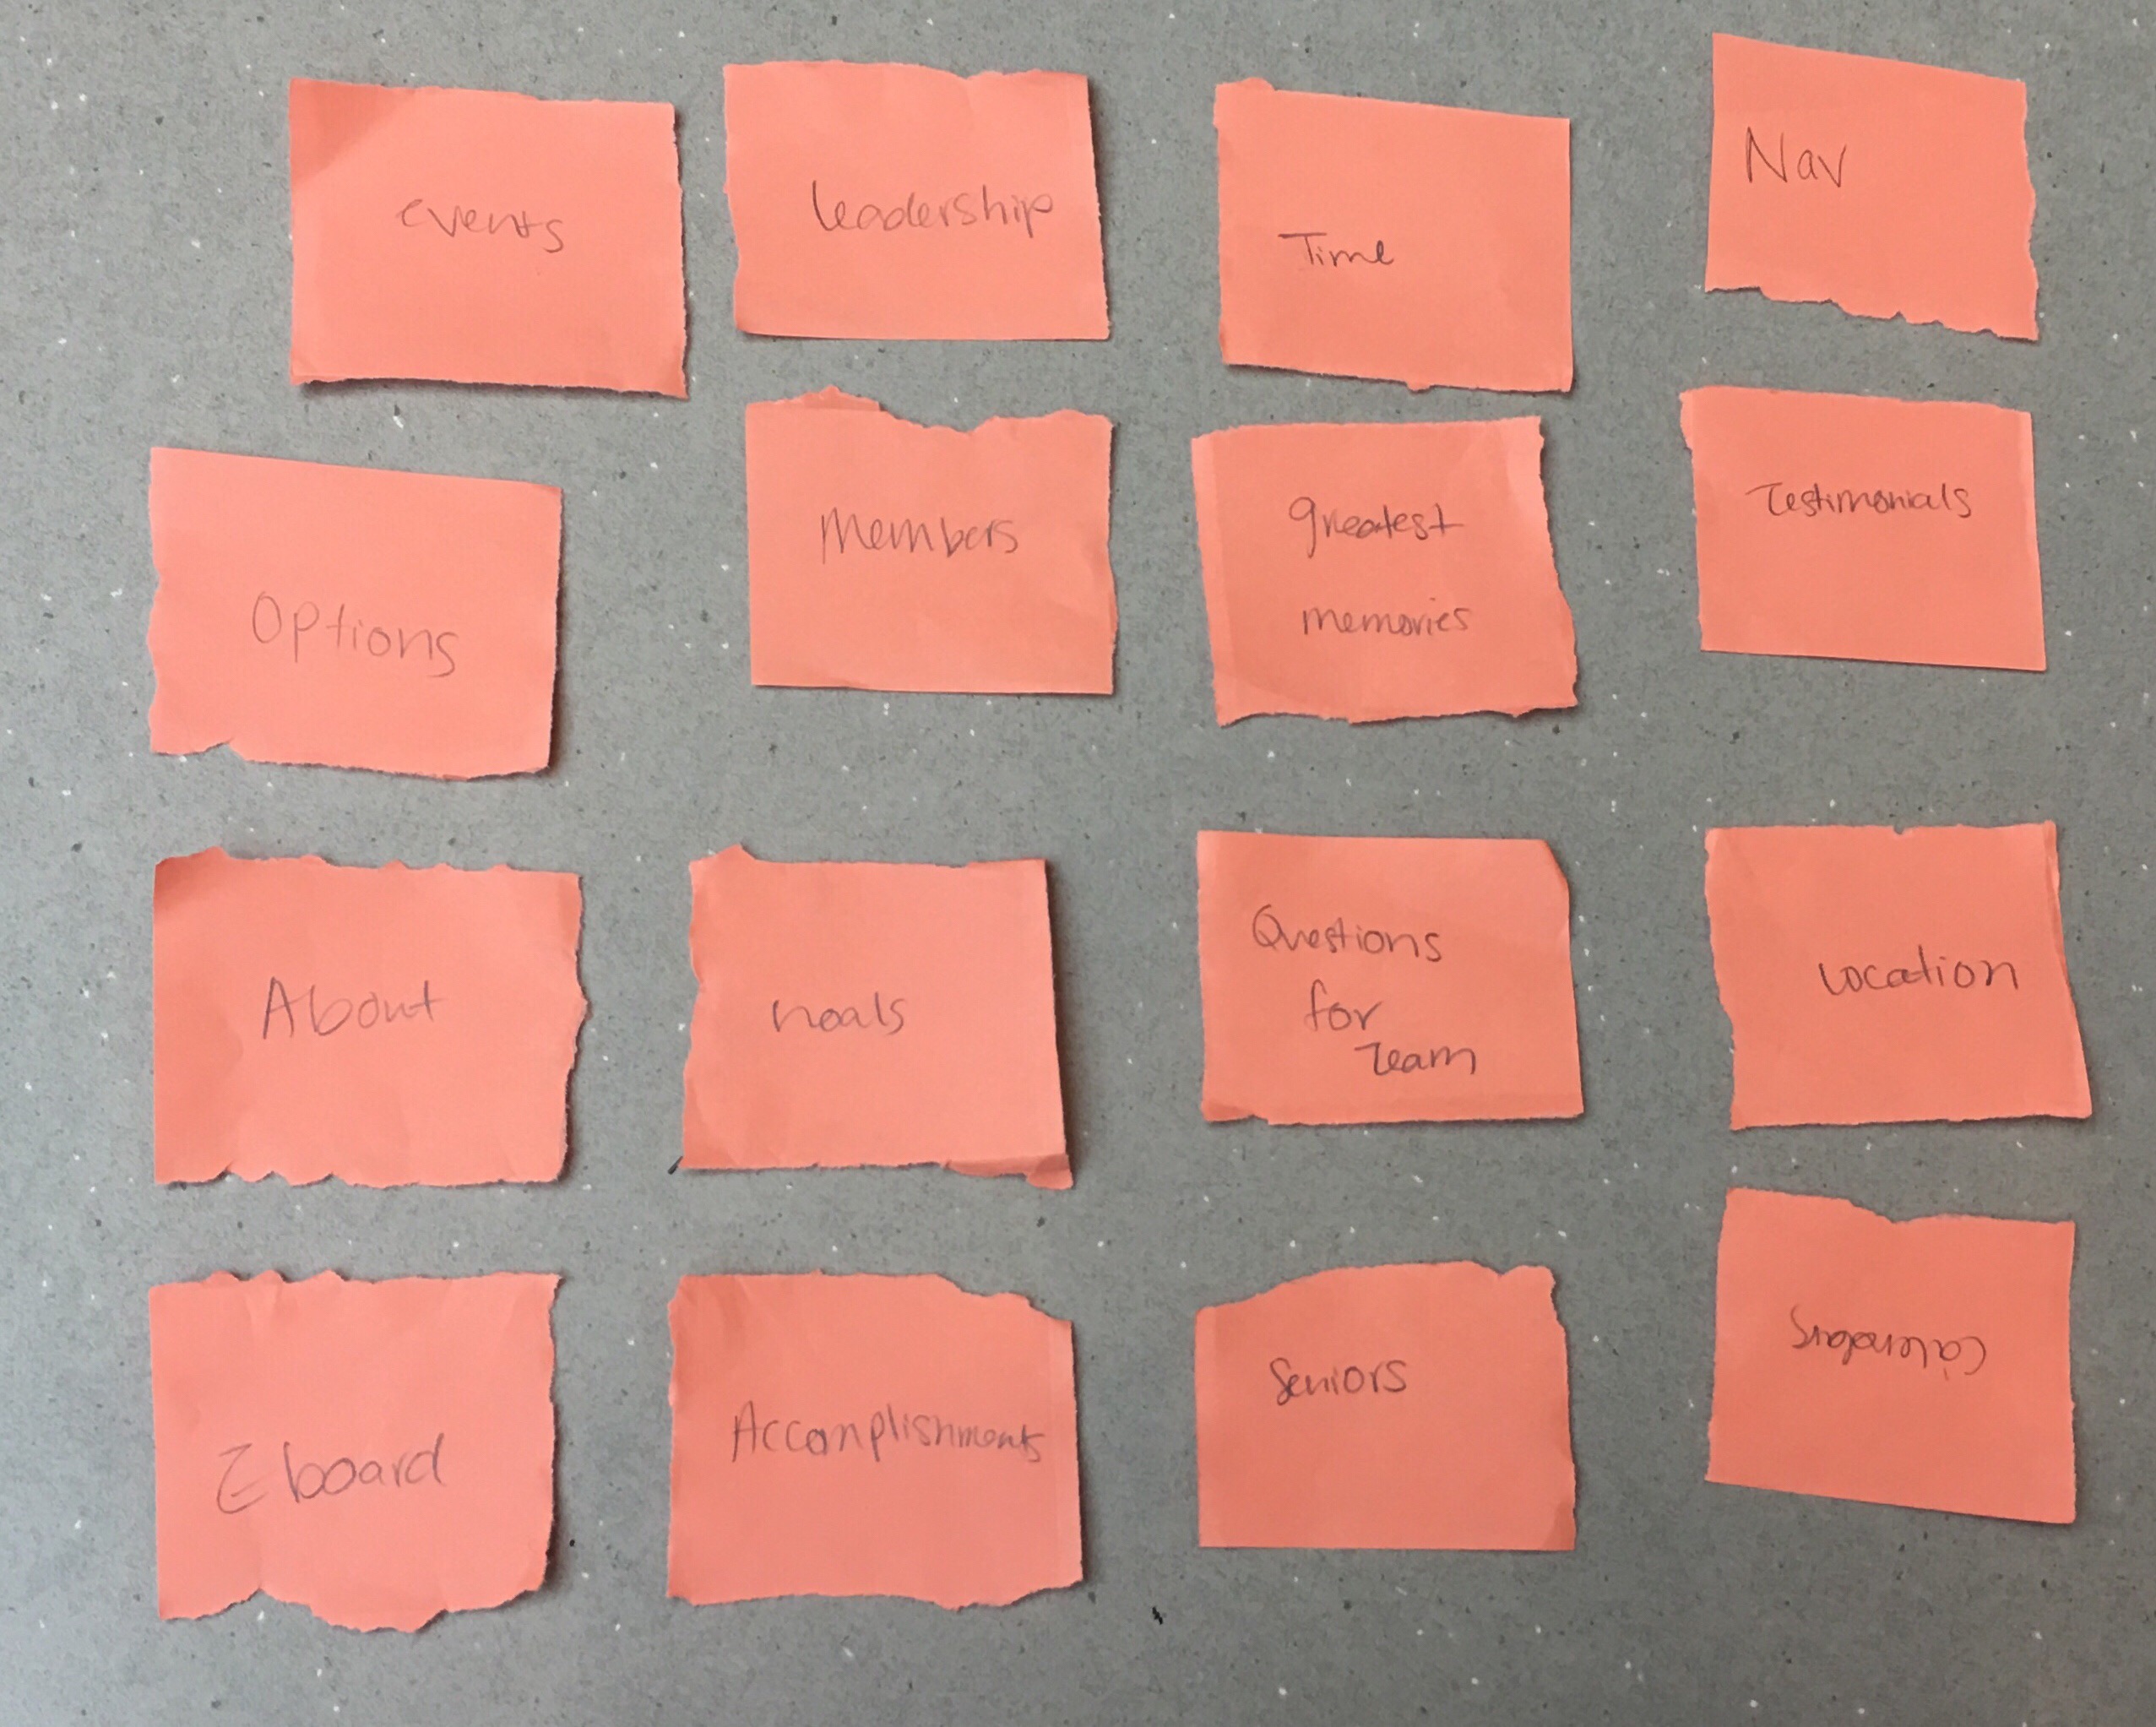 events
leadership
Time
Nav
Options
Members
greatest
memories
Testimonials
About
Questions
for
Team
Location
Eboard
Accomplishments
Seniors